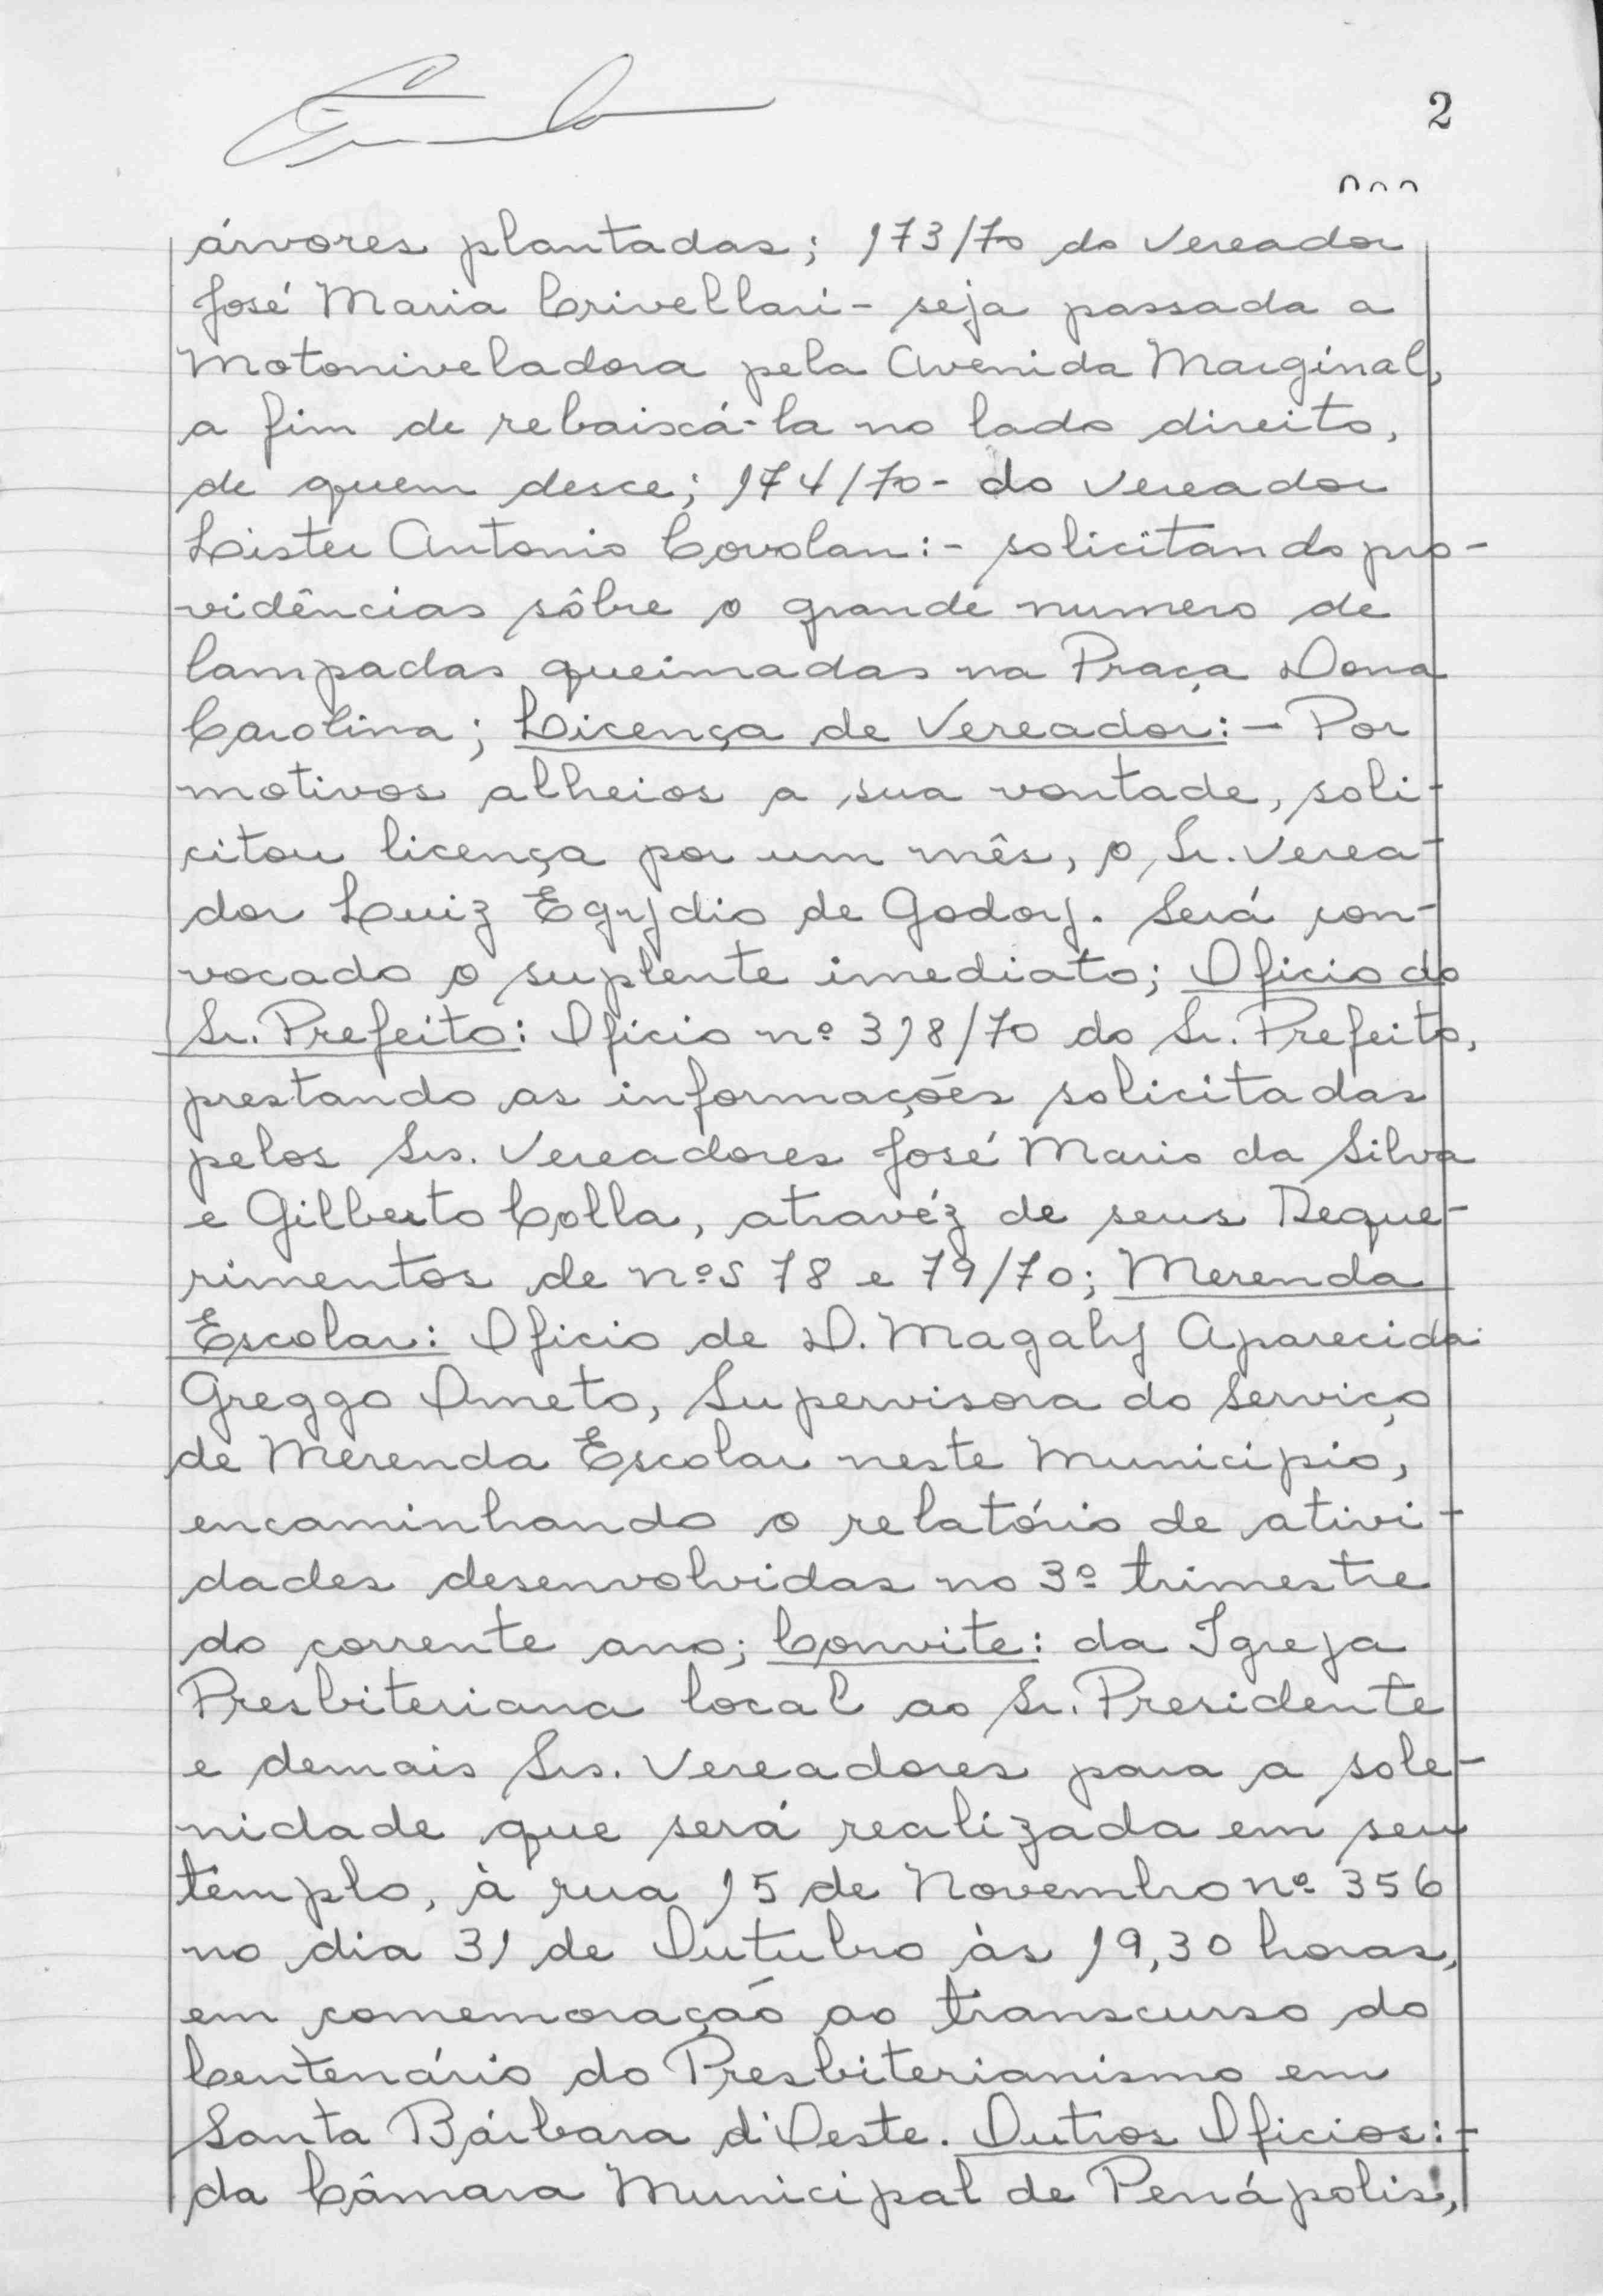 2
árvores plantadas; 173/70 do Vereador
José Maria Crivellari - seja passada a
Motoniveladora pela Avenida Marginal,
a fim de rebaixá-la no lado direito,
de quem desce; 174/70 - do Vereador
Lister Antonio Covolan:- solicitando pro-
vidências sôbre o grande numero de
lampadas queimadas na Praça Dona
Carolina; Licença de Vereador:- Por
motivos alheios a sua vontade, soli-
citou licença por um mês, o Sr. Verea-
dor Luiz Egydio de Godoy. Será con-
vocado o suplente imediato; Oficio do
Sr. Prefeito: Oficio nº 318/70 do Sr. Prefeito,
prestando as informações solicitadas
pelos Srs. Vereadores José Mario da Silva
e Gilberto Colla, atravéz de seus Reque-
rimentos de nºs 78 e 79/70; Merenda
Escolar: Oficio de D. Magaly Aparecida
Greggo Ometo, Supervisora do Serviço
de Merenda Escolar neste Municipio,
encaminhando o relatório de ativi-
dades desenvolvidas no 3º trimestre
do corrente ano; Convite: da Igreja
Presbiteriana local ao Sr. Presidente
e demais Srs. Vereadores para a sole-
nidade que será realizada em seu
templo, à rua 15 de Novembro nº 356
no dia 31 de Outubro às 19,30 horas,
em comemoração ao transcurso do
Centenário do Presbiterianismo em
Santa Bárbara d'Oeste. Outros Oficios:-
da Câmara Municipal de Penápolis,